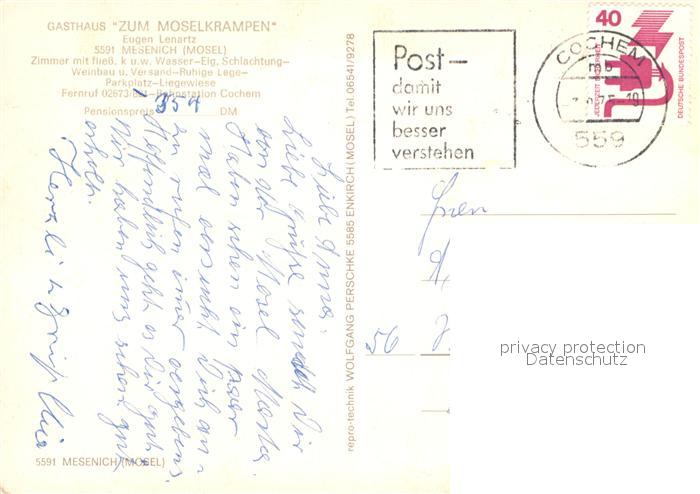 GASTHAUS "ZUM MOSELKRAMPEN"
Eugen Lenartz
5591 MESENICH (MOSEL)
Zimmer mit fließ. k u.w. Wasser-Eig. Schlachtung-
Weinbau u. Versand-Ruhige Lage-
Parkplatz-Liegewiese
Fernruf 02673/ -Bahnstation Cochem
Pensionspreis DM
Liebe Anna.
Liebe Grüße sendet Dir
von der Mosel
Haben schon ein paar
mal versucht Dich an-
zu rufen immer vergebens.
Hoffentlich geht es Dir gut.
Wir haben uns schon gut
erholt.
Herzliche Grüße
5591 MESENICH (MOSEL)
repro-technik WOLFGANG PERSCHKE 5585 ENKIRCH (MOSEL) Tel. 06541/9278
Post-
damit
wir uns
besser
verstehen
COCHEM
559
40
JEDERZEIT SICHERHEIT
DEUTSCHE BUNDESPOST
56
privacy protection
Datenschutz